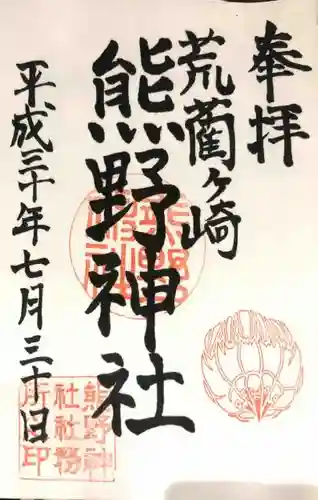 奉拝
荒藺ヶ崎
熊野神社
平成三十年七月三十日
熊野神
社社務
所印